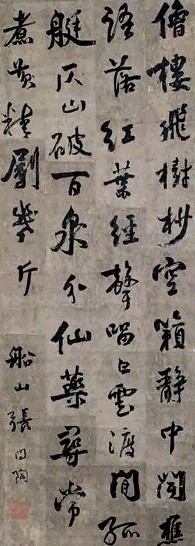 僧樓飛樹杪空籟靜中聞樵
語落紅葉經聲留白雲渡閒孤
艇仄山破百泉分仙藥尋常
煮黃精劚幾斤
船山張問陶